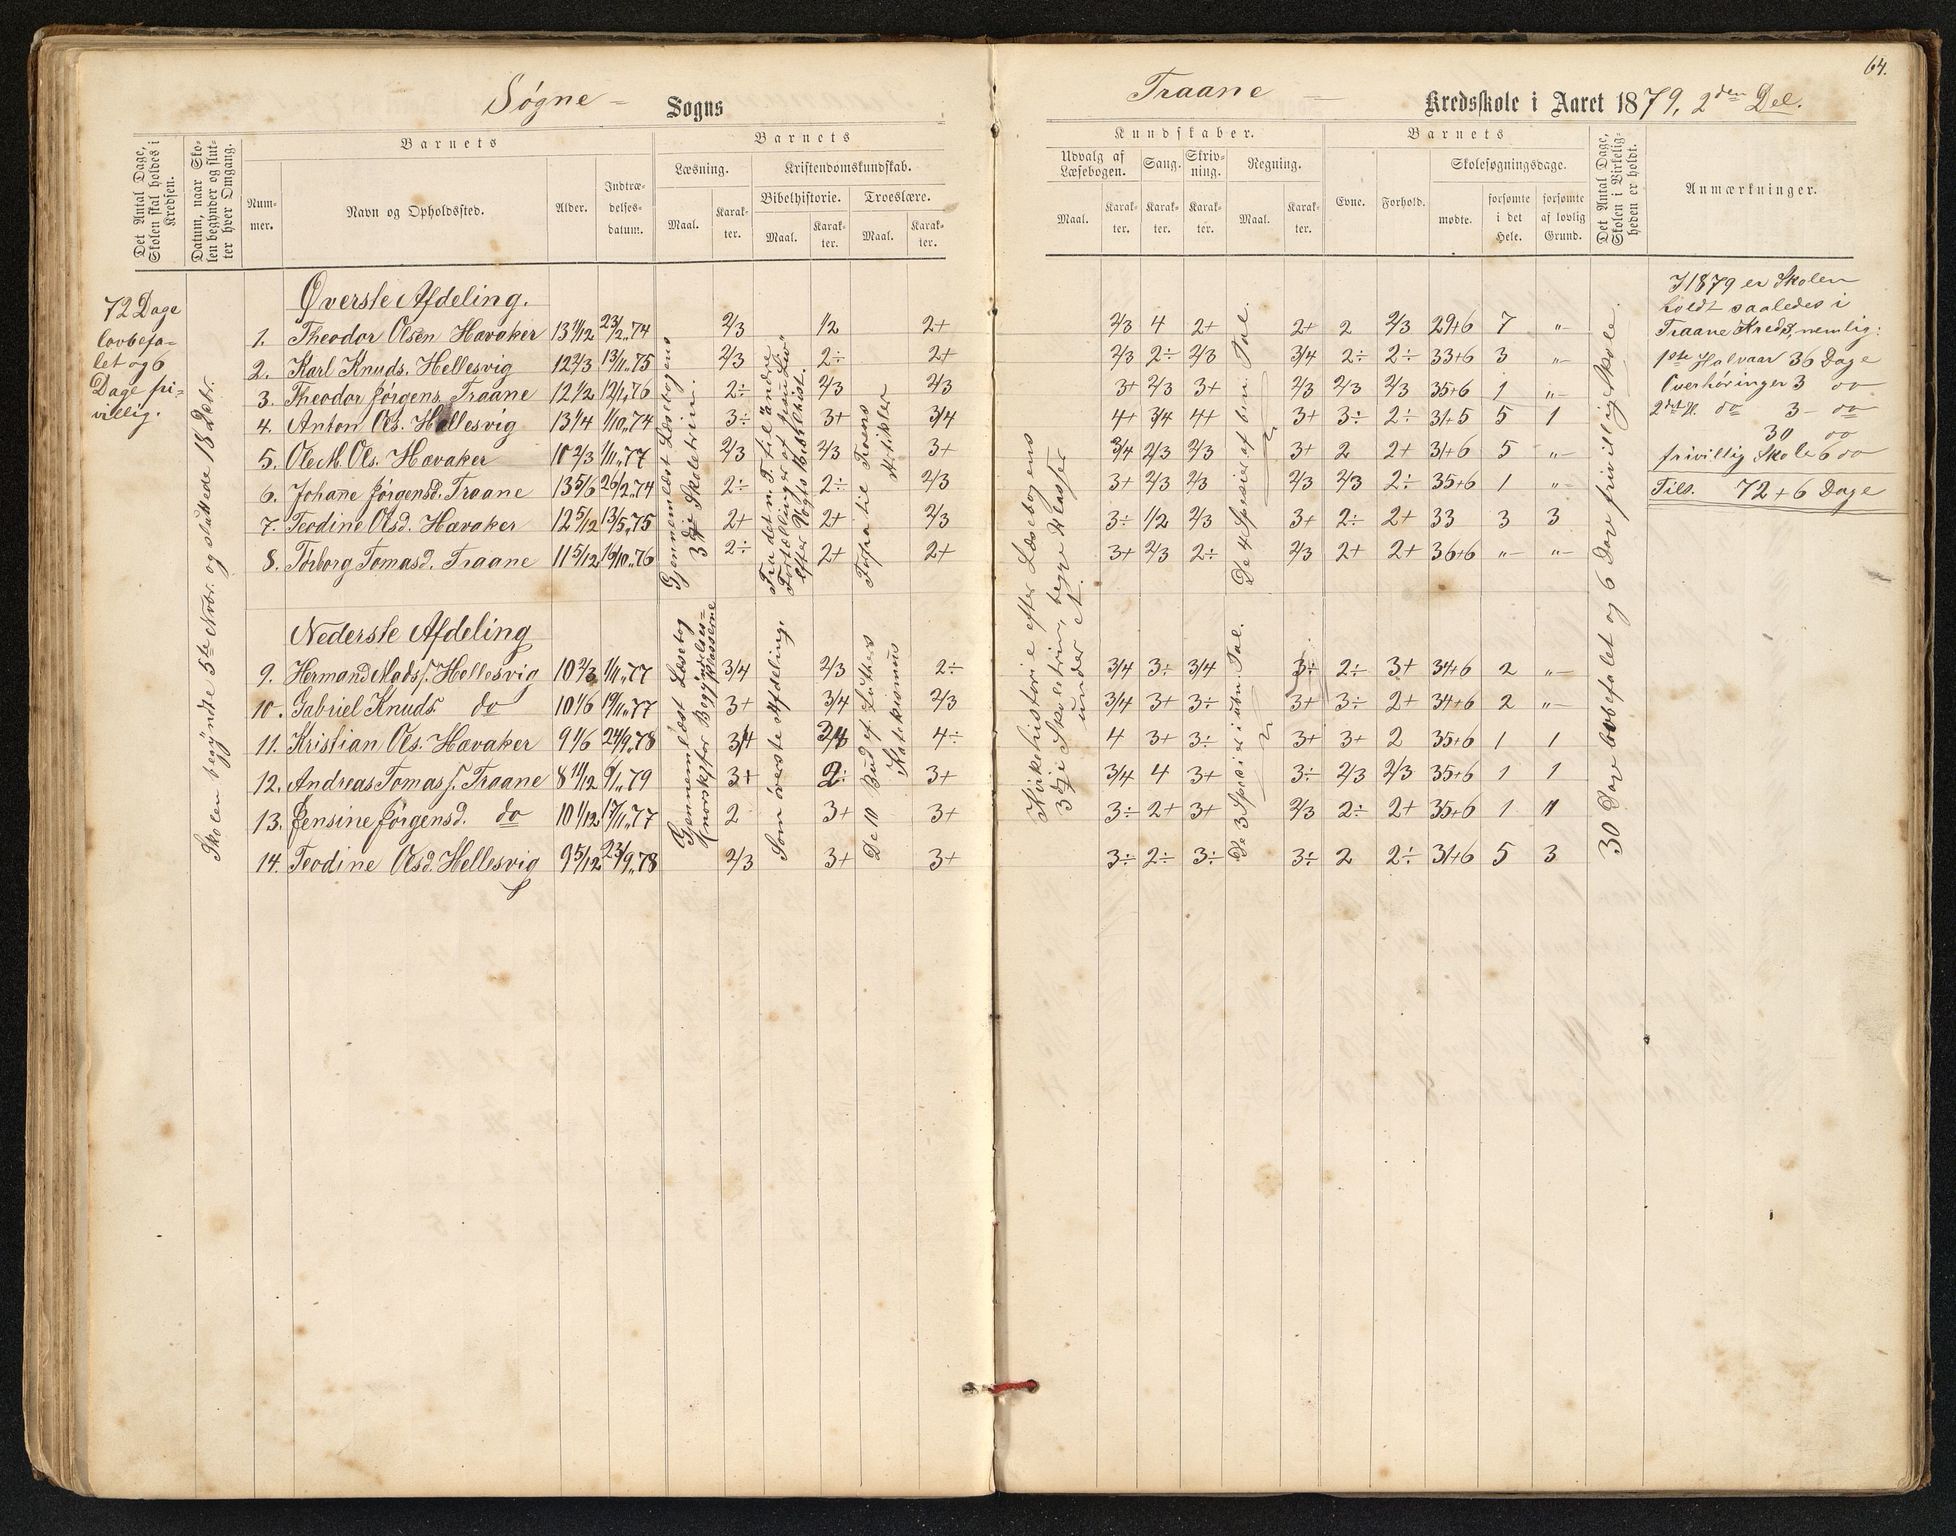 64.
Søgne – Sogns
Traane – Kredsskole i Aaret 1879, 2den Del.
Det Antal Dage, Skolen skal holdes i Kredsen.
Datum, naar Skolen begynder og slutter hver Omgang.
Barnets
Nummer.
Navn og Opholdssted.
Alder.
Indtrædelsesdatum.
Barnets
Læsning.
Maal.
Karakter.
Kristendomskundskab.
Bibelhistorie.
Maal.
Karakter.
Troeslære.
Maal.
Karakter.
Kundskaber.
Udvalg af Læsebogen.
Maal.
Karakter.
Sang.
Karakter.
Skrivning.
Karakter.
Regning.
Maal.
Karakter.
Barnets
Evne.
Forhold.
Skolesøgningsdage.
mødte.
forsømte i det Hele.
forsømte af lovlig Grund.
Det Antal Dage, Skolen i Virkeligheden er holdt.
Anmærkninger.
72 Dage
lovbefa-
let og 6
Dage fri-
villig.
Skolen begyndte 5te Nvbr. og sluttede 18 Dcbr.
Øverste Afdeling.
1. Theodor Olsen Havaker 13 11/12 23/2 74 2/3 1/2 2+ 2/3 4 2+ 2+ 2 2/3 29+6 7 "–
2. Karl Knuds. Hellesvig 12 2/3 13/11 75 2/3 2÷ 2+ 2/3 2÷ 2/3 3/4 2÷ 2÷ 33+6 3 "–
3. Theodor Jørgens. Traane 12 1/2 12/1 76 2÷ 2/3 2/3 3+ 2/3 3+ 2/3 2/3 2/3 35+6 1 "–
4. Anton Ols. Hellesvig 13 1/4 1/10 74 3÷ 3+ 3/4 4+ 3/4 4+ 3+ 3÷ 2÷ 31+5 5 1
5. Ole M. Ols. Havaker 10 2/3 1/11 77 2/3 2/3 3+ 3/4 2/3 2/3 3+ 2 2+ 31+6 5 "–
6. Johane Jørgensd. Traane 13 5/6 26/2 74 2÷ 2÷ 2/3 3+ 2/3 2/3 2/3 2/3 2÷ 35+6 1 "–
7. Teodine Olsd. Havaker 12 5/12 13/5 75 2+ 2+ 2/3 3÷ 1/2 2/3 3+ 2÷ 2+ 33 3 3
8. Torborg Tomasd. Traane 11 5/12 16/10 76 2÷ 2+ 2+ 3+ 2/3 2÷ 2/3 2+ 2+ 36+6 "– "–
Gjennemlæst Læsebogens
3die Skoletrin.
Fra det n. T. til "andre
Fortællinger af Jesu Liv"
efter Vogts Bibelhist.
Forfra til Troens
Artikler
Kirkehistorie efter Læsebogens
3die Skoletrin, begge Klasser
under et.
De 4 Specier af ben. Tal.
30 Dage lovbefalet og 6 Dage frivillig Skole.
Nederste Afdeling
9. Herman Mads s. Hellesvig 10 2/3 1/11 77 3/4 2/3 2÷ 3/4 3÷ 3/4 3÷ 2÷ 3+ 34+6 2 "–
10. Gabriel Knuds. do 10 1/6 19/11 77 3+ 3/4 2/3 3/4 3+ 3÷ 3+ 3÷ 2+ 34+6 2 "–
11. Kristian Ols. Havaker 9 1/6 24/9 78 3/4 3/4 4÷ 4 3+ 3÷ 3+ 3+ 2 35+6 1 1
12. Andreas Tomas s. Traane 8 11/12 6/1 79 3+ 2÷ 3+ 3/4 4 3+ 3÷ 2/3 2/3 35+6 1 1
13. Jensine Jørgensd. do 10 1/12 17/11 77 2 3+ 3+ 3÷ 2+ 3+ 2/3 2÷ 2+ 35+6 1 "
14. Teodine Olsd. Hellesvig 9 5/12 23/9 78 2/3 3+ 3+ 3÷ 2÷ 3÷ 3÷ 2 2÷ 31+6 5 3
Gjennemlæst Læsebog
for Begyndelses=
Klasserne
Som øverste Afdeling.
De 10 Bud ef. Luthers
Katekismus
De 3 Specier i ubn. Tal.
I 1879 er Skolen
holdt saaledes i
Traane Kreds, nemlig:
1ste Halvaar 36 Dage
Overhøringer 3 do
2det H. do 3 – do
30 do
frivillig Skole 6 do
Tils. 72 + 6 Dage